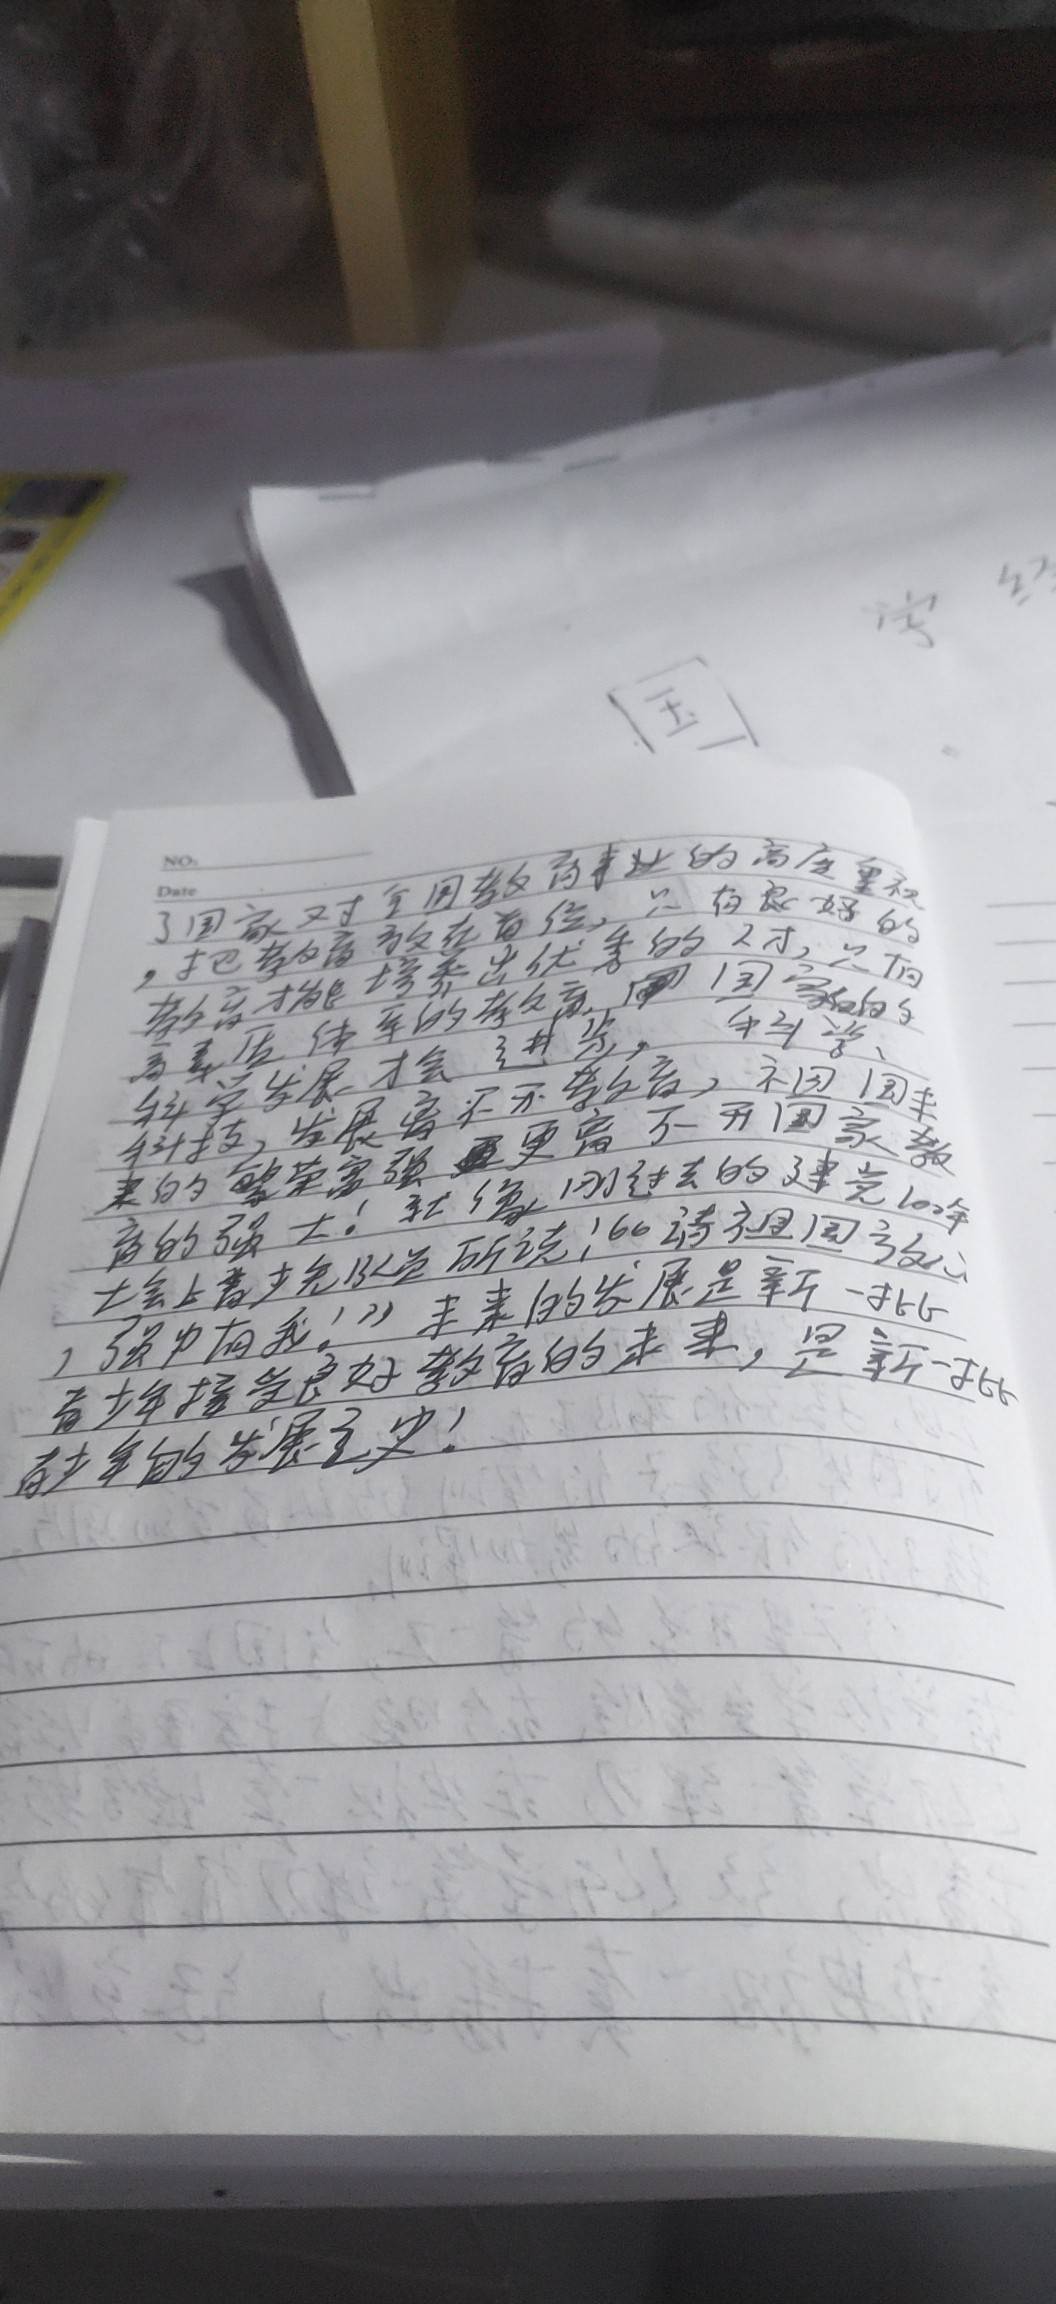 字 经
国
NO.
Date
了国家对全国教育事业的高度重视
，把教育放在首位，只有良好的
教育才能培养出优秀的人才，只有
高素质体系的教育，国家的
科学发展才会进步。科学、
科技，发展离不开教育，祖国未
来的繁荣富强更离不开国家教
育的强大！就像刚过去的建党100年
大会上青少先队员所说：“请祖国放心
，强国有我！”未来的发展是新一批
青少年接受良好教育的未来，是新一批
青少年的发展之史！